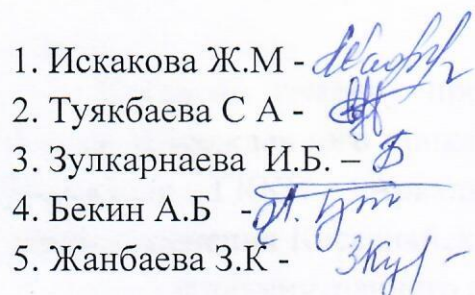 1. Искакова Ж.М -
2. Туякбаева С А -
3. Зулкарнаева И.Б. –
4. Бекин А.Б -
5. Жанбаева З.К -